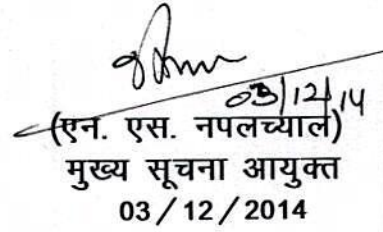 03/12/14
(एन. एस. नपलच्याल)
मुख्य सूचना आयुक्त
03 / 12 / 2014